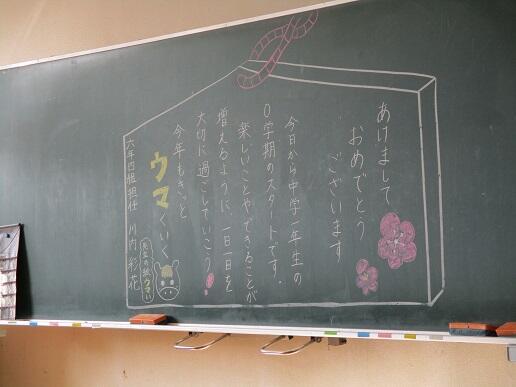 あけまして
おめでとう
ございます
今日から中学一年生の
0学期のスタートです。
楽しいことやできることが
増えるように、一日一日を
大切に過ごしていこう!
今年もきっと
ウマくいく
先生の絵ウマい
六年四組担任 川内 彩花